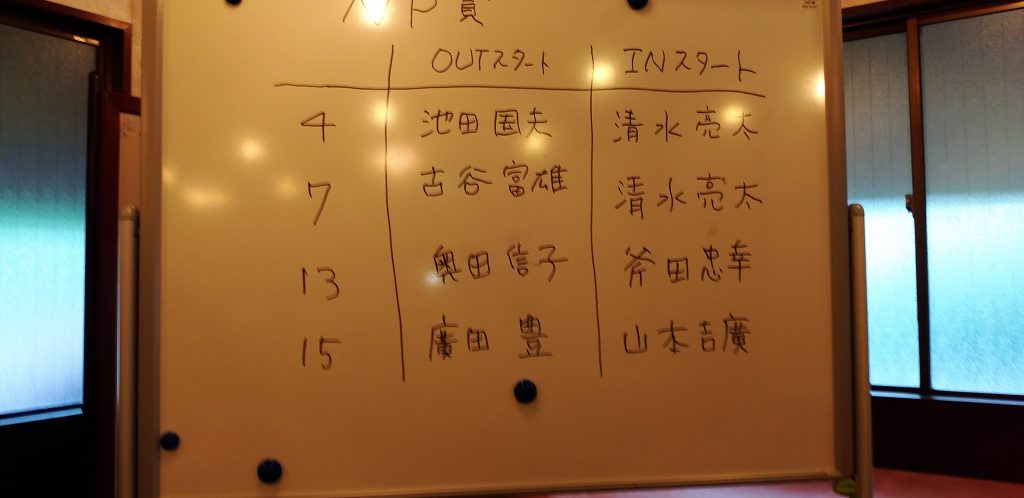 NP賞
OUTスタート INスタート
4 池田国夫 清水亮太
7 古谷富雄 清水亮太
13 奥田信子 斧田忠幸
15 廣田 豊 山本吉廣